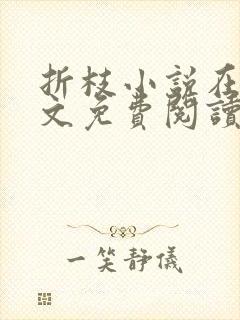 折枝小說在
文免費閱讀
一笑靜儀